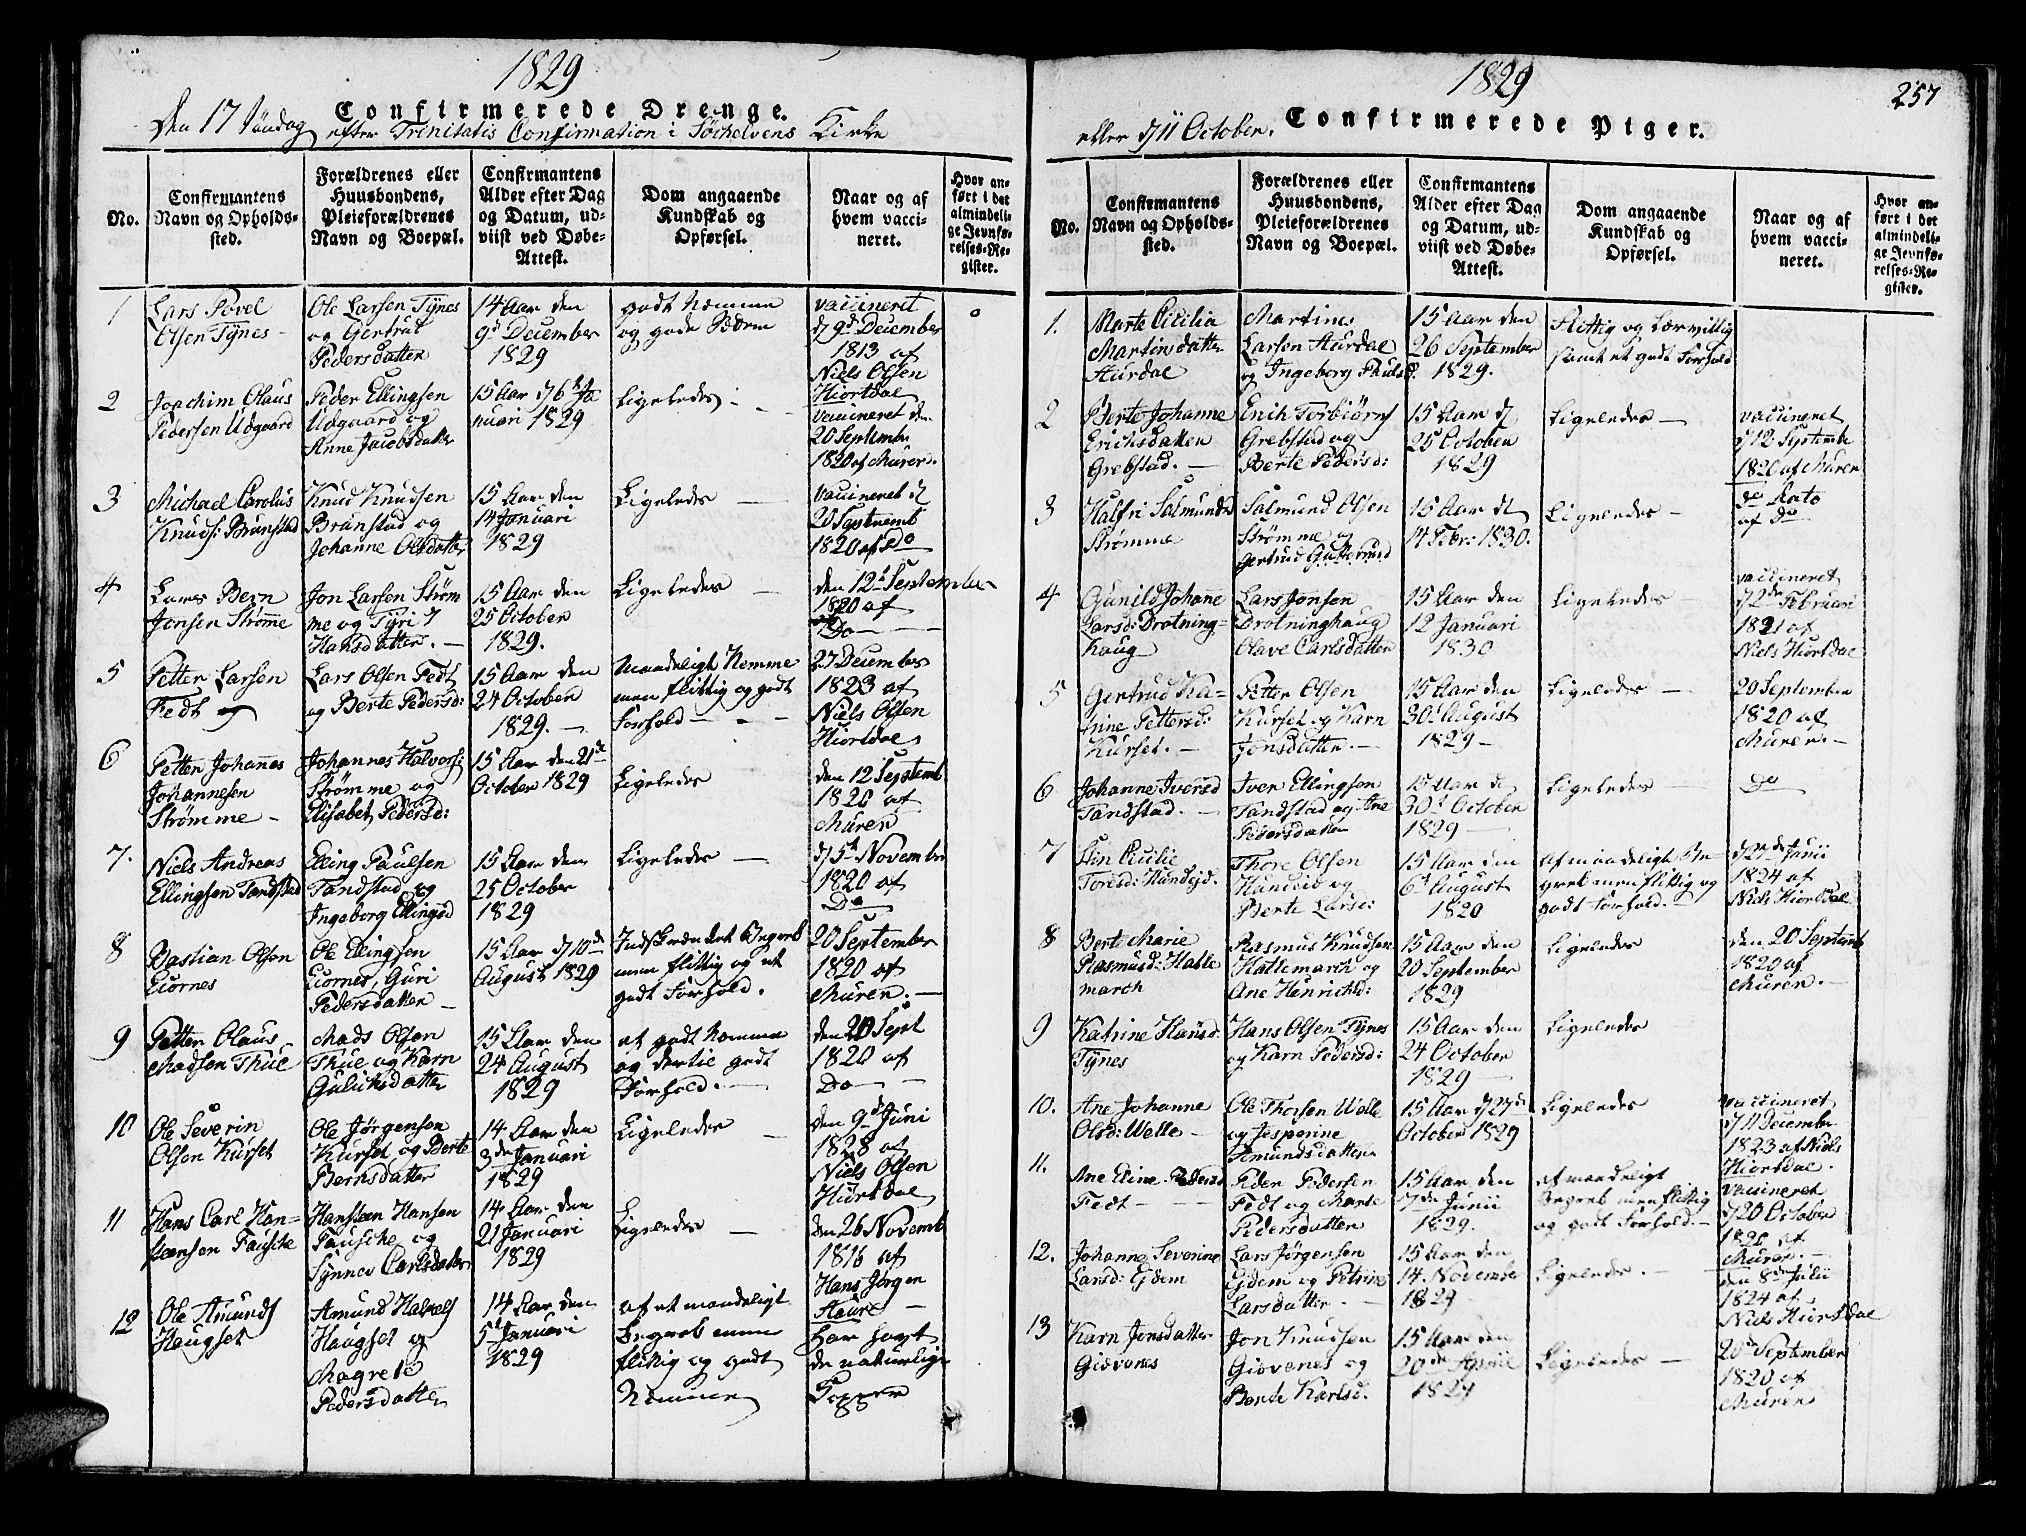 1829
Confirmerede Drenge.
Den 17 Søndag efter Trinitatis Confirmation i Søchelvens Kirke
No.
Confirmantens
Navn og Opholds-
sted.
Forældrenes eller
Huusbondens,
Pleieforældrenes
Navn og Boepæl.
Confirmantens
Alder efter Dag
og Datum, ud-
viist ved Døbe-
Attest.
Dom angaaende
Kundskab og
Opførsel.
Naar og af
hvem vacci-
neret.
Hvor an-
ført i det
almindeli-
ge Jevnfø-
relses-Re-
gister.
1
Lars Povel
Olsen Tÿnes
Ole Larsen Tÿnes
og Gertrut
Pedersdatter
14 Aar den
9d December
1829
godt Nemme
og gode Sæder
vaccineret
d 9d December
1813 af
Niels Olsen
Hiortdal
2
Joachim Olaus
Pedersen Udgaard
Peder Ellingsen
Udgaard og
Anne Jacobsdatter
15 Aar d 6t Ja
nuari 1829
Ligeledes
vaccineret den
20 Septembr
1820 af Muren
3
Michael Carolus
Knuds: Brunstad
Knud Knudsen
Brunstad og
Johanne Olsdatter
15 Aar den
14 Januari
1829
Ligeledes
vaccineret d
20 Septemb
1820 af Do
4
Lars Bern
Jonsen Strømme
Jon Larsen Strøm
me og Tyri
Hansdatter.
15 Aar den
25 October
1829.
Ligeledes
den 12t September
1820 af
Do
5
Petter Larsen
Fedt
Lars Olsen Fedt
og Berte Pedersd:
15 Aar den
24 October
1829.
Maadeligt Nemme
men flittig og godt
Forhold
27 December
1823 af
Niels Olsen
Hiortdal
6
Petter Johanes
Johannesen
Strømme
Johannes Halvors:
Strømme og
Elisabet Pedersd:
15 Aar den 21de
October 1829
Ligeledes
den 12 Septemb
1820 af
Muren
7.
Niels Andreas
Ellingsen Tandstad
Elling Paulsen
Tandstad og
Ingeborg Ellingsd
15 Aar den
25 October
1829
Ligeledes
d 5t Novembr
1820 af
Do
8
Bastian Olsen
Eiornes
Ole Ellingsen
Eiornes, Guri
Pedersdatter
15 Aar d 10de
August 1829
Indskrænket Begreb
men flittig og et
godt Forhold.
20 September
1820 af
Muren.
9
Petter Olaus
Madsen Thue
Mads Olsen
Thue og Karn
Guluchsdatter
15 Aar den
24 August
1829
et godt Nemme
og dertil godt
Forhold.
den 20 Sept
1820 af
Do
10
Ole Severin
Olsen Kurset
Ole Jørgensen
Kurset og Berte
Berntsdatter
14 Aar den
3de Januari
1829
Ligeledes
den 9d Juni
1828 af
Niels Olsen
Hiortdal
11
Hans Carl Han-
steensen Fausche
Hansteen Hansen
Fausche og
Synnev Carlsdatter
14 Aar den
21 Januari
1829
Ligeledes
den 26 Novemb
1816 af
Hans Jørgen
Aure
12
Ole Amunds
Haugset
Amund Halvols
Haugset og
Magrete
Pedersdatter
14 Aar den
5t Januari
1829
af et maadeligt
Begreb men
flittig og godt
Nemme
har havt
de naturlige
Kopper
88
1829
257
Confirmerede Piger.
eller d 11 October.
No.
Confirmantens
Navn og Opholds-
sted.
Forældrenes eller
Huusbondens,
Pleieforældrenes
Navn og Boepæl.
Confirmantens
Alder efter Dag
og Datum, ud-
viist ved Døbe-
Attest.
Dom angaaende
Kundskab og
Opførsel.
Naar og af
hvem vacci-
neret.
Hvor an-
ført i det
almindeli-
ge Jevnfø-
relses-Re-
gister.
1.
Marte Cicilia
Martinsdatter
Aurdal
Martines
Larsen Aurdal
og Ingeborg Paulsd.
15 Aar den
26 September
1829.
Flittig og Lærvillig
samt et godt Forhold
2
Berte Johanne
Erichsdatter
Grebstad.
Erich Torbiørns
Grebstad og
Berte Pedersd:
15 Aar d
25 October
1829
Ligeledes
vaccineret
d 12 Septembr
1820 af Muren
3
Halfri Salmunds
Strømme
Salmund Olsen
Strømme og
Gertrud
15 Aar d
14 Febr: 1830.
Ligeledes
do Dato
af do
4
Gunild Johane
Larsd: Drotning-
haug
Lars Jonsen
Drotninghaug
Olave Carlsdatter
15 Aar den
12 Januari
1830
Ligeledes
vaccineret
d 2de Februari
1821 af
Niels Hiortdal
5
Gertrud Ka-
rine Pettersd:
Kurset.
Petter Olsen
Kurset og Karn
Jonsdatter.
15 Aar den
30t August
1829
Ligeledes
20 September
1820 af
Muren.
6
Johanne Iversd
Tandstad.
Iver Ellingsen
Tandstad og Ane
Pedersdatter
15 Aar d
30t October
1829
Ligeledes
Do
7
Elin Cecilie
Toresd: Hundeid.
Thore Olsen
Hundeid og
Berte Larsd:
15 Aar den
6t August
1820
af maadeligt Be-
greb men flittig og
godt Forhold.
d 27de Junii
1824 af
Niels Hiortdal
8
Berte Marie
Rasmusd: Halle
march
Rasmus Knudsen
Hallemarch og
Ane Henrichsd:
15 Aar den
20 September
1829
Ligeledes
den 20 Septemb
1820 af
Muren.
9
Katrine Hansd:
Tÿnes
Hans Olsen Tÿnes
og Karn Pedersd:
15 Aar den
24 October
1829
Ligeledes
10.
Ane Johanne
Olsd: Welle
Ole Thorsen Welle
og Jesperine
Semundsdatter
15 Aar d 27de
October 1829
Ligeledes
vaccineret
d 11 December
1823 af Niels
Hiortdal.
11.
Ane Eline Pedersd
Fedt
Peder Pedersen
Fedt og Marte
Pedersdatter
15 Aar den
7de Junii
1829.
af maadeligt
Begreb men flittig
og godt Forhold.
vaccineret
d 20 October
1820 af
Muren.
12.
Johanne Severine
Larsd: Eidem
Lars Jørgensen
Eidem og Petrine
Larsdatter.
15 Aar den
14. November
1829
Ligeledes.
den 8de Julii
1824 af
Niels Hiortdal
13
Karn Jonsdatter
Giøvenes
Jon Knudsen
Giøvenes og
Bente Karlsd.
15 Aar den
20de April
1829
Ligeledes
20de September
1820 af
Muren